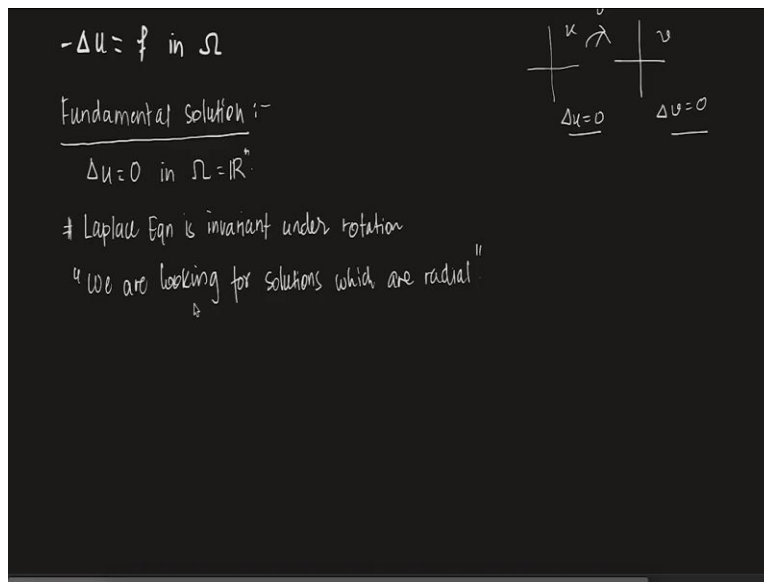 -Δu = f in Ω
Fundamental solution :-
Δu = 0 in Ω = ℝⁿ.
# Laplace Eqn is invariant under rotation
"We are looking for solutions which are radial"
u v
Δu=0 Δv=0